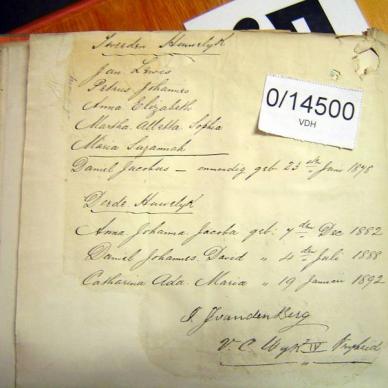 Tweeden Huwelyk
Jan Lewis
Petrus Johannes
Anna Elizabeth
Martha Aletta Sophia
Maria Susannah
Daniel Jacobus — onmondig geb 23 ste Juni 1878
Derde Huwelyk
Anna Johanna Jacoba geb: 7 den Dec 1882
Daniel Johannes David „ 4 den Juli 1888
Catharina Ada Maria „ 19 Januari 1892
J. J vanden Berg
V. C. Wyk IV Vryheid
0/14500
VDH